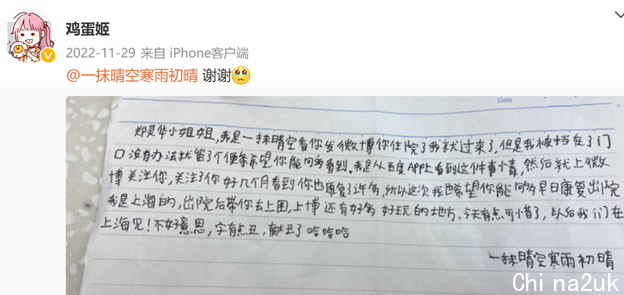 鸡蛋姬
2022-11-29 来自 iPhone客户端
@一抹晴空寒雨初晴 谢谢🥺
Date
郑灵华小姐姐,我是一抹晴空看你发微博你住院了我就过来了,但是我被挡在了门
口没有办法就留了个便条希望你能够看到。我是从百度APP上看到这件事情,然后就上微
博关注你,关注了你好几个月看到你也康复了许多,所以这次我也希望你能够早日康复出院
我是上海的,出院后带你去上图,上博还有好多好玩的地方,今天有点可惜了,以后我们在
上海见!不好意思,字有点丑,献丑了哈哈哈
一抹晴空寒雨初晴
Chi na2uk